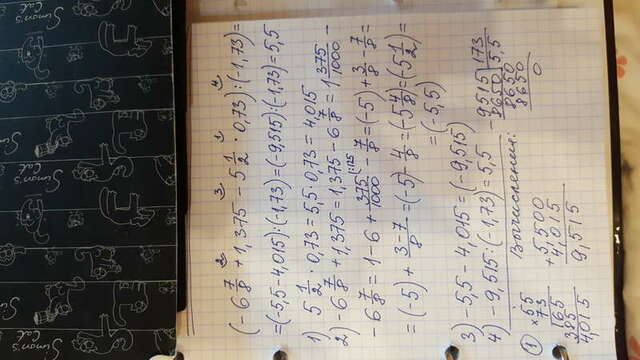 Simon's Cat
Simon's Cat
2 3 1 4
(-6 7/8 + 1,375 - 5 1/2 · 0,73) : (-1,73) =
= (-5,5 - 4,015) : (-1,73) = (-9,515) : (-1,73) = 5,5
1) 5 1/2 · 0,73 = 5,5 · 0,73 = 4,015
2) -6 7/8 + 1,375 = 1,375 - 6 7/8 = 1 375/1000 -
- 6 7/8 = 1 - 6 + 375/1000 (1:125 - 7/8 = (-5) + 3/8 - 7/8 =
= (-5) + 3-7/8 = (-5) - 4/8 = (-5 4/8) = (-5 1/2) =
= (-5,5)
3) -5,5 - 4,015 = (-9,515)
4) -9,515 : (-1,73) = 5,5
Вычисления:
1
× 55
73
165
385
4,015
+ 5,500
4,015
9,515
- 9515 | 173
8650 | 5,5
8650
8650
0